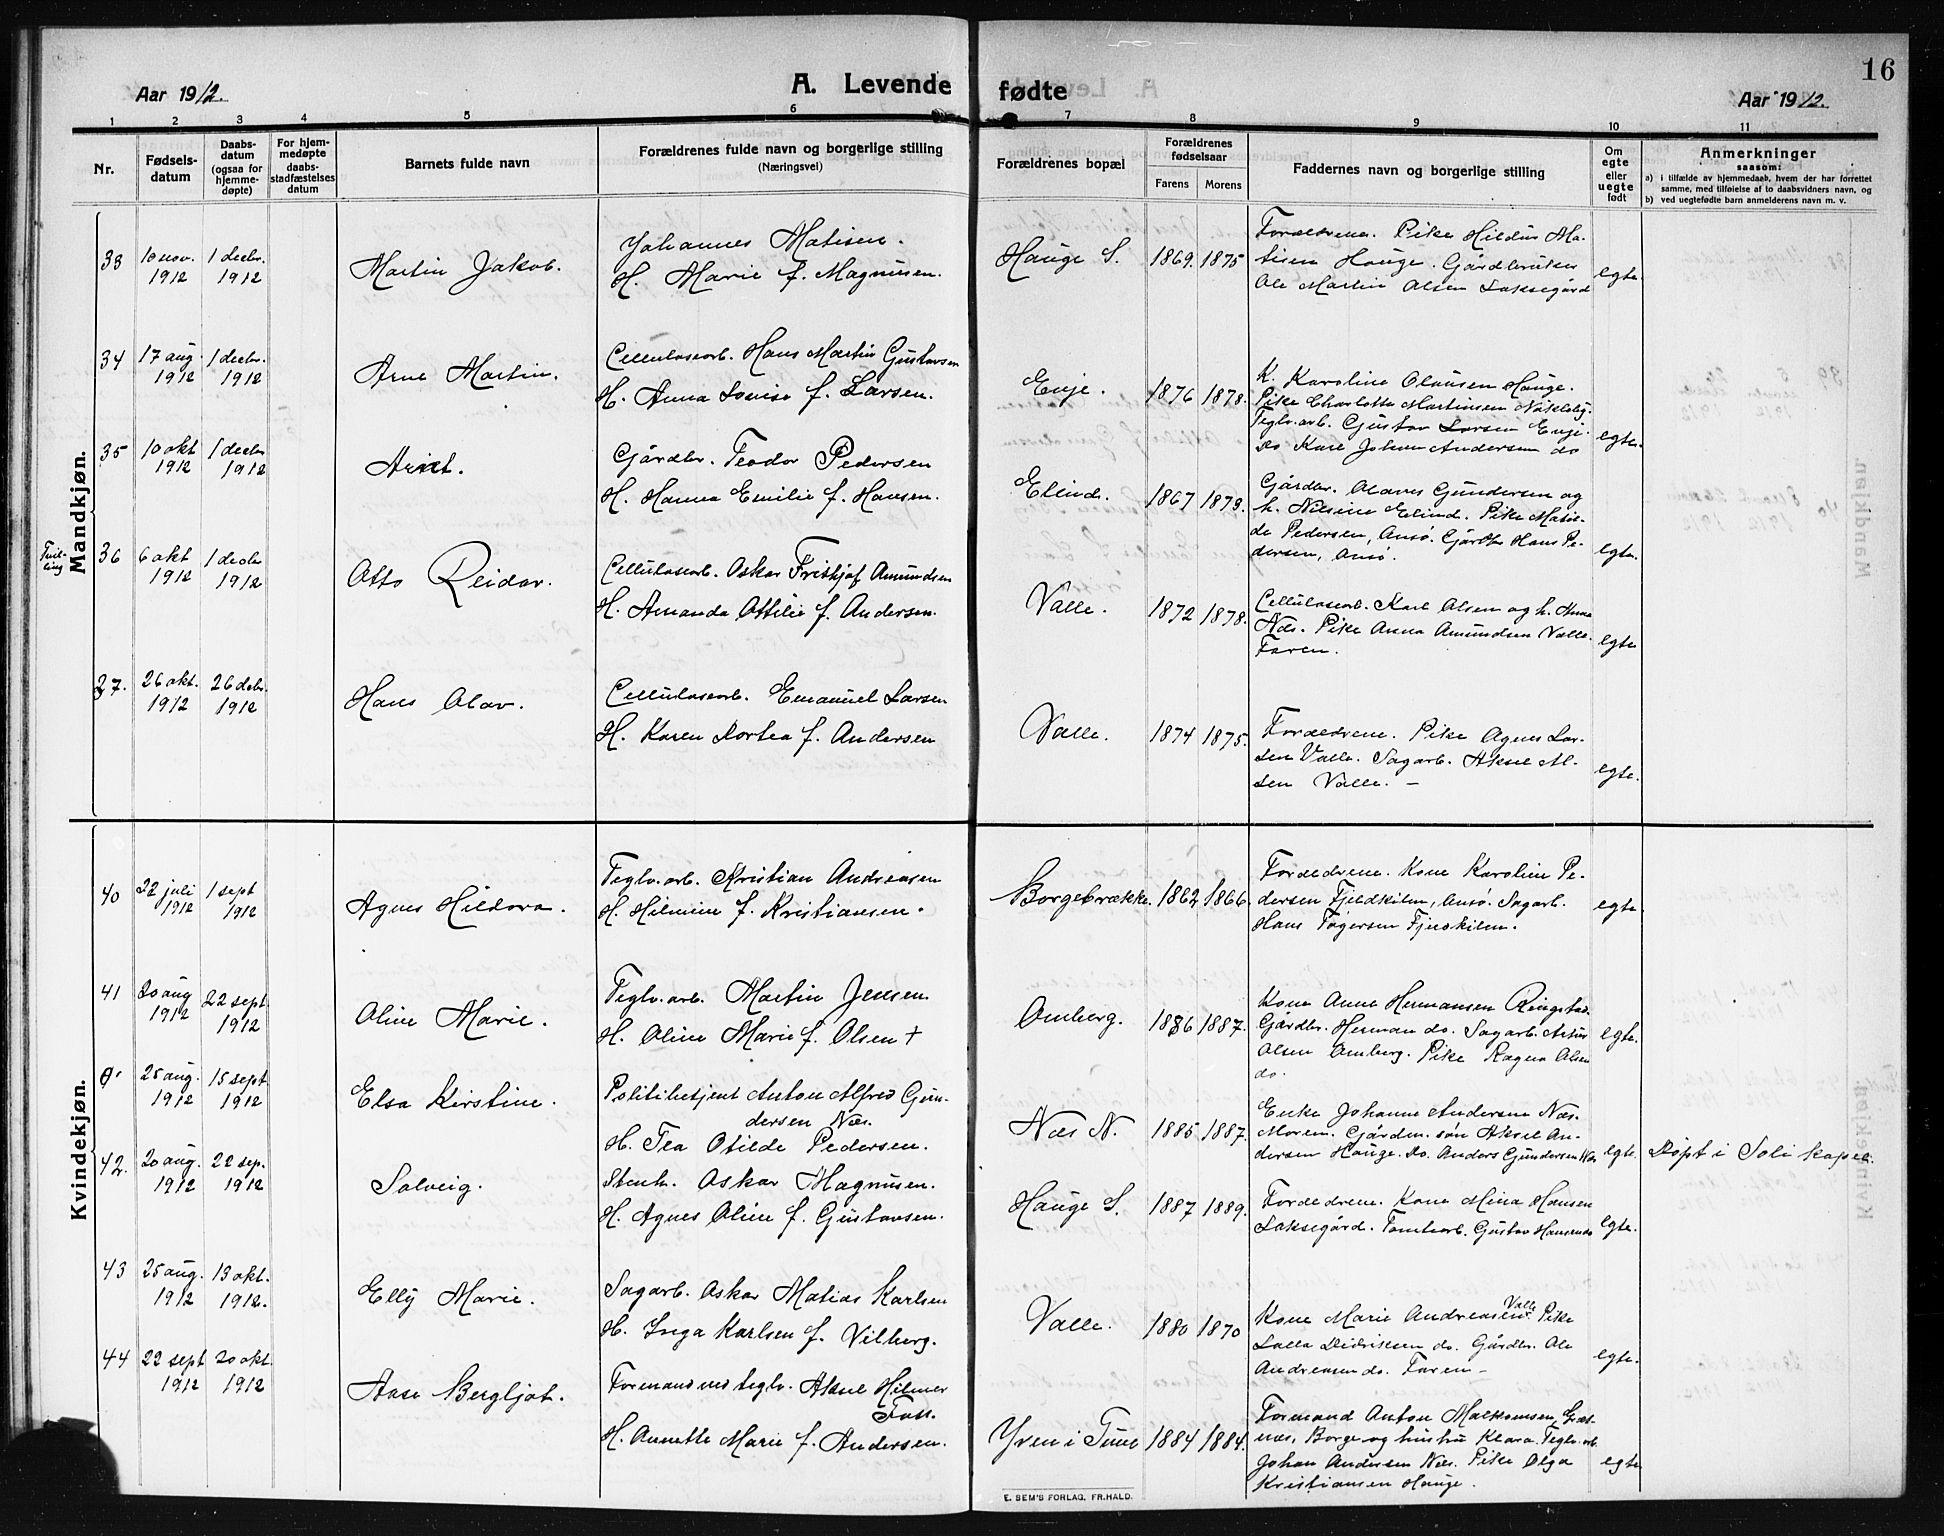 16
Aar 1912.
A. Levende fødte
Aar 1912.
1 2 3 4 5 6 7 8 9 10 11
Nr.
Fødsels-
datum
Daabs-
datum
(ogsaa for
hjemme-
døpte)
For hjem-
medøpte
daabs-
stadfæstelses
datum
Barnets fulde navn
Forældrenes fulde navn og borgerlige stilling
(Næringsvei)
Forældrenes bopæl
Forældrenes
fødselsaar
Farens Morens
Faddernes navn og borgerlige stilling
Om
egte
eller
uegte
født
Anmerkninger
saasom:
a) i tilfælde av hjemmedaab, hvem der har forrettet
samme, med tilføielse av to daabsvidners navn, og
b) ved uegtefødte barn anmelderens navn m. v.
Mandkjøn.
33 10 nov. 1 decbr.
1912 1912
Martin Jakob.
Johannes Matisen.
H. Marie f. Magnusen.
Hauge S. 1869. 1875
Forældrene. Pike Hildur Ma-
tisen Hauge. Gårdbruker
Ole Martin Olsen Laksegård
egte.
34 17 aug. 1 decbr.
1912 1912
Arne Martin.
Cellulosearb. Hans Martin Gustavsen
H. Anna Lovise f. Larsen.
Enje. 1876 1878.
K. Karoline Olausen Hauge.
Pike Charlotte Martinsen
Teglv.arb. Gustav Larsen Enje.
do Karl Johan Andersen do
egte.
35 10 okt 1 decbr
1912 1912
Gårdbr. Teodor Pedersen
H. Hanna Emilie f. Hansen.
Elind. 1867 1879.
Gårdbr. Olaves Gundersen og
h. Nilsine Elind. Pike Matil-
de Pedersen, Ansø. Gårdbr Hans Pe-
dersen, Ansø.
egte.
Tvil-
ling
36 6 okt 1 decbr
1912 1912
Otto Reidar.
Cellulosearb. Oskar Frithjof Amundsen
H. Amanda Ottilie f. Andersen.
Valle. 1872 1878.
Cellulosearb. Karl Olsen og h. Anna
Næs. Pike Anna Amundsen Valle.
Faren.
egte
37. 26 okt. 26 decbr.
1912 1912
Hans Olav.
Cellulosearb. Emanuel Larsen
H. Karen Dortea f. Andersen
Valle. 1874 1875.
Forældrene. Pike Agnes Lar-
sen Valle. Sagarb. Aksel Ol-
sen Valle. –
egte.
Kvindekjøn.
40 22 juli 1 sept
1912 1912
Agnes Hildora.
Teglv.arb. Kristian Andreasen
H. Hilmine f. Kristiansen.
Borgebrække. 1862 1866.
Forældrene. Kone Karoline Pe-
dersen Fjeldkilen, Ansø. Sagarb.
Hans Tøgersen Fjelskilen.
egte.
41 20 aug 22 sept
1912 1912
Oline Marie.
Teglv.arb. Martin Jensen
H. Oline Marie f. Olsen †
Omberg. 1886 1887.
Kone Anne Hermansen Ringstad.
Gårdbr. Herman do. Sagarb. Artur
Olsen Omberg. Pike Ragna Olsen
do.
egte.
0' 25 aug. 15 sept
1912 1912
Elsa Kirstine.
Politibetjent Anton Alfred Gun-
dersen Næs.
H. Tea Otilde Pedersen.
Næs N. 1885 1887.
Enke Johanne Andersen Næs.
Moren. Gårdm. søn Aksel An-
dersen Hauge. Do. Anders Gundersen Næs
egte.
Døpt i Soli kapel.
42. 20 aug. 22 sep.
1912 1912
Solveig.
Stenh. Oskar Magnusen.
H. Agnes Oline f. Gustavsen.
Hauge S. 1887 1889.
Forældrene. Kone Mina Hansen
Laksegård. Tomtearb. Gustav Hansen do
egte.
43 25 aug. 13 okt.
1912 1912.
Elly Marie.
Sagarb. Oskar Matias Karlsen
H. Inga Karlsen f. Vilberg.
Valle. 1880 1870
Kone Marie Andreasen Valle Pike
Lalla Didriksen do. Gårdbr. Ole
Andreasen do. Faren –
egte.
44 22 sept 20 okt.
1912 1912
Aase Bergljot.
Formand ved teglv. Aksel Hilmer
Foss.
H. Annette Marie f. Andersen.
Yven i Tune 1884 1884.
Formand Anton Malkomsen, Græs-
næs, Borge og hustru Klara. Teglv.arb
Johan Andersen Næs. Pike Olga
Kristiansen Hauge.
egte
E. SEM'S FORLAG, FR.HALD.